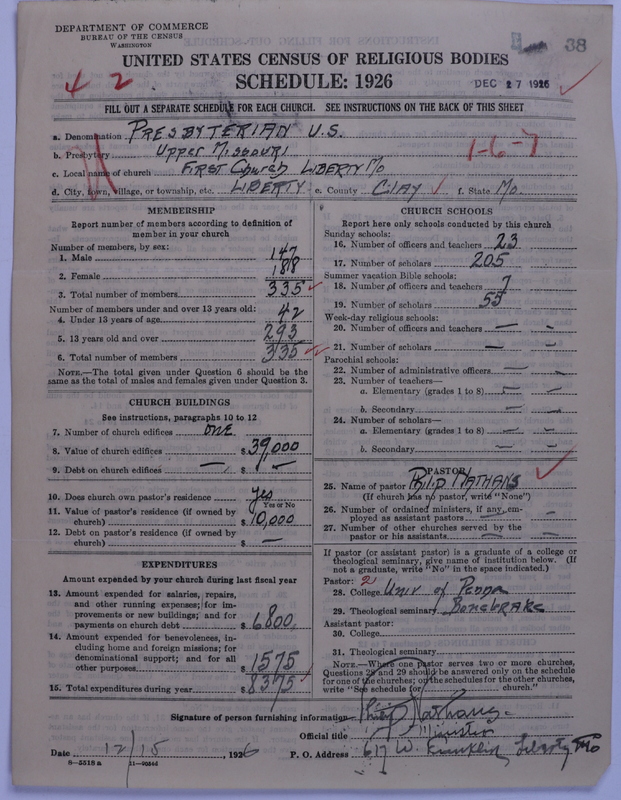 DEPARTMENT OF COMMERCE
BUREAU OF THE CENSUS
WASHINGTON
38
UNITED STATES CENSUS OF RELIGIOUS BODIES
SCHEDULE: 1926
4 2
DEC 27 1926
FILL OUT A SEPARATE SCHEDULE FOR EACH CHURCH. SEE INSTRUCTIONS ON THE BACK OF THIS SHEET
a. Denomination PRESBYTERIAN U.S.
b. Presbytery Upper Missouri
1-6-7
c. Local name of church First Church Liberty Mo
d. City, town, village, or township, etc. LIBERTY e. County CLAY f. State Mo
MEMBERSHIP
Report number of members according to definition of member in your church
Number of members, by sex:
1. Male 147
2. Female 188
3. Total number of members 335
Number of members under and over 13 years old:
4. Under 13 years of age 42
5. 13 years old and over 293
6. Total number of members 335
NOTE.—The total given under Question 6 should be the same as the total of males and females given under Question 3.
CHURCH BUILDINGS
See instructions, paragraphs 10 to 12
7. Number of church edifices ONE
8. Value of church edifices $ 39,000
9. Debt on church edifices — $ —
10. Does church own pastor's residence yes
Yes or No
11. Value of pastor's residence (if owned by church) $ 10,000
12. Debt on pastor's residence (if owned by church) $ —
EXPENDITURES
Amount expended by your church during last fiscal year
13. Amount expended for salaries, repairs, and other running expenses; for improvements or new buildings; and for payments on church debt $ 6800
14. Amount expended for benevolences, including home and foreign missions; for denominational support; and for all other purposes $ 1575
15. Total expenditures during year $ 8375
CHURCH SCHOOLS
Report here only schools conducted by this church
Sunday schools:
16. Number of officers and teachers 23
17. Number of scholars 205
Summer vacation Bible schools:
18. Number of officers and teachers 7
19. Number of scholars 55
Week-day religious schools:
20. Number of officers and teachers —
21. Number of scholars —
Parochial schools:
22. Number of administrative officers —
23. Number of teachers—
a. Elementary (grades 1 to 8) —
b. Secondary —
24. Number of scholars—
a. Elementary (grades 1 to 8) —
b. Secondary —
PASTOR
25. Name of pastor Philip Nathans
(If church has no pastor, write "None")
26. Number of ordained ministers, if any, employed as assistant pastors —
27. Number of other churches served by the pastor or his assistants —
If pastor (or assistant pastor) is a graduate of a college or theological seminary, give name of institution below. (If not a graduate, write "No" in the space indicated.)
Pastor: 2
28. College Univ of Penna
29. Theological seminary Bonebrake
Assistant pastor:
30. College
31. Theological seminary
NOTE.—Where one pastor serves two or more churches, Questions 28 and 29 should be answered only on the schedule for one of the churches; on the schedules for the other churches, write "See schedule for church."
Signature of person furnishing information Philip Nathans
Official title Minister
Date 12/15, 1926 P. O. Address 617 W. Franklin, Liberty Mo
8—5518 a